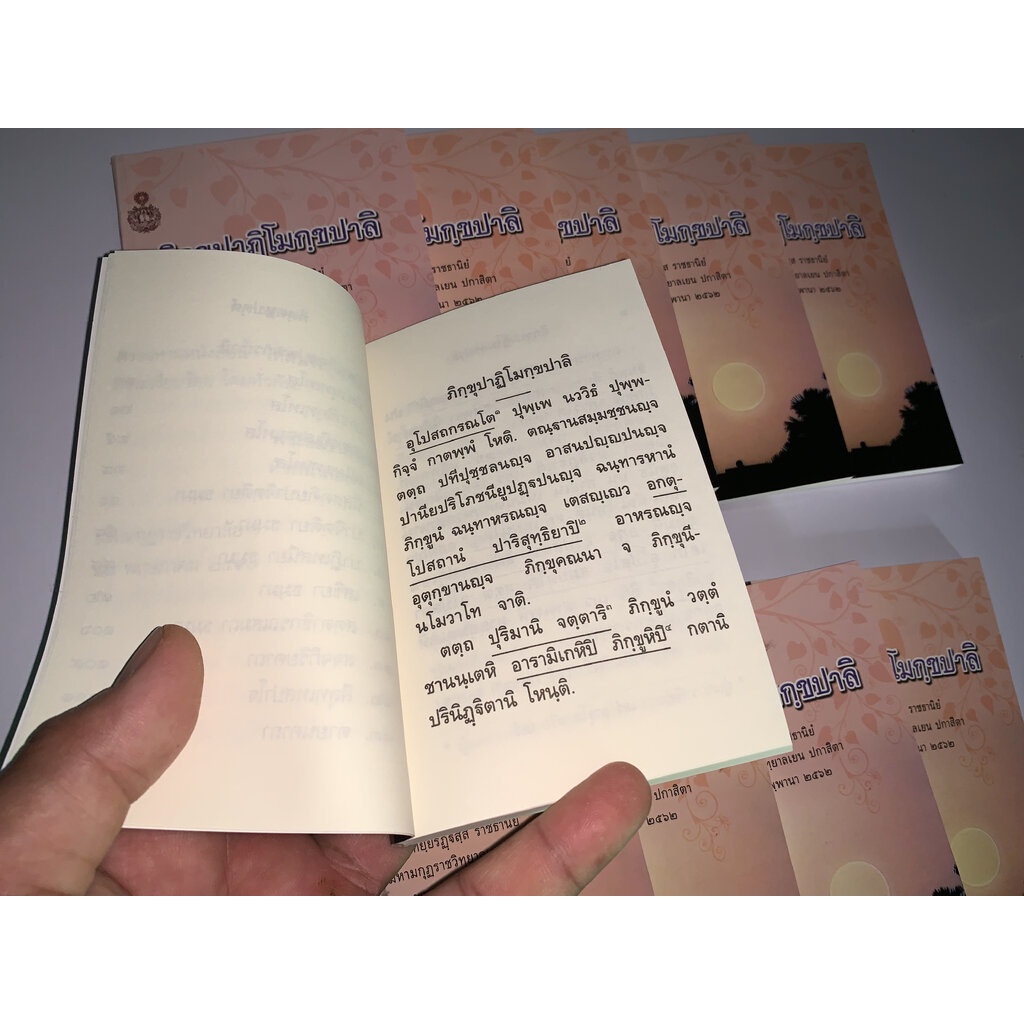 ภิกฺขุปาฏิโมกฺขปาลิ
โมกฺขปาลิ
ขปาลิ
โมกฺขปาลิ
โมกฺขปาลิ
ราชธานิยํ
ปกาสิตา
๒๕๖๒
ราชธานิยํ
ยาลเยน ปกาสิตา
พพานา ๒๕๖๒
ส ราชธานิยํ
ยาลเยน ปกาสิตา
พพานา ๒๕๖๒
ภิกฺขุปาฏิโมกฺขปาลิ
อุโปสถกรณโต๑ ปุพฺเพ นววิธํ ปุพฺพ-
กิจฺจํ กาตพฺพํ โหติ. ตณฺฐานสมฺมชฺชนญฺจ
ตตฺถ ปทีปุชฺชลนญฺจ อาสนปญฺญปนญฺจ
ปานียปริโภชนียูปฏฺฐปนญฺจ ฉนฺทารหานํ
ภิกฺขูนํ ฉนฺทาหรณญฺจ เตสญฺเญว อกตุ-
โปสถานํ ปาริสุทฺธิยาปิ๒ อาหรณญฺจ
อุตุกฺขานญฺจ ภิกฺขุคณนา จ ภิกฺขุนี-
นโมวาโท จาติ.
ตตฺถ ปุริมานิ จตฺตาริ๓ ภิกฺขูนํ วตฺตํ
ชานนฺเตหิ อารามิเกหิปิ ภิกฺขูหิปิ๔ กตานิ
ปรินิฏฺฐิตานิ โหนฺติ.
กฺขปาลิ
โมกฺขปาลิ
ราชธานิยํ
ปกาสิตา
๒๕๖๒
ราชธานิยํ
ยาลเยน ปกาสิตา
พพานา ๒๕๖๒
ราชธานิยํ
ลเยน ปกาสิตา
นา ๒๕๖๒
ทยฺยรฏฺฐสฺส ราชธานิยํ
มหามกุฏราชวิทยา